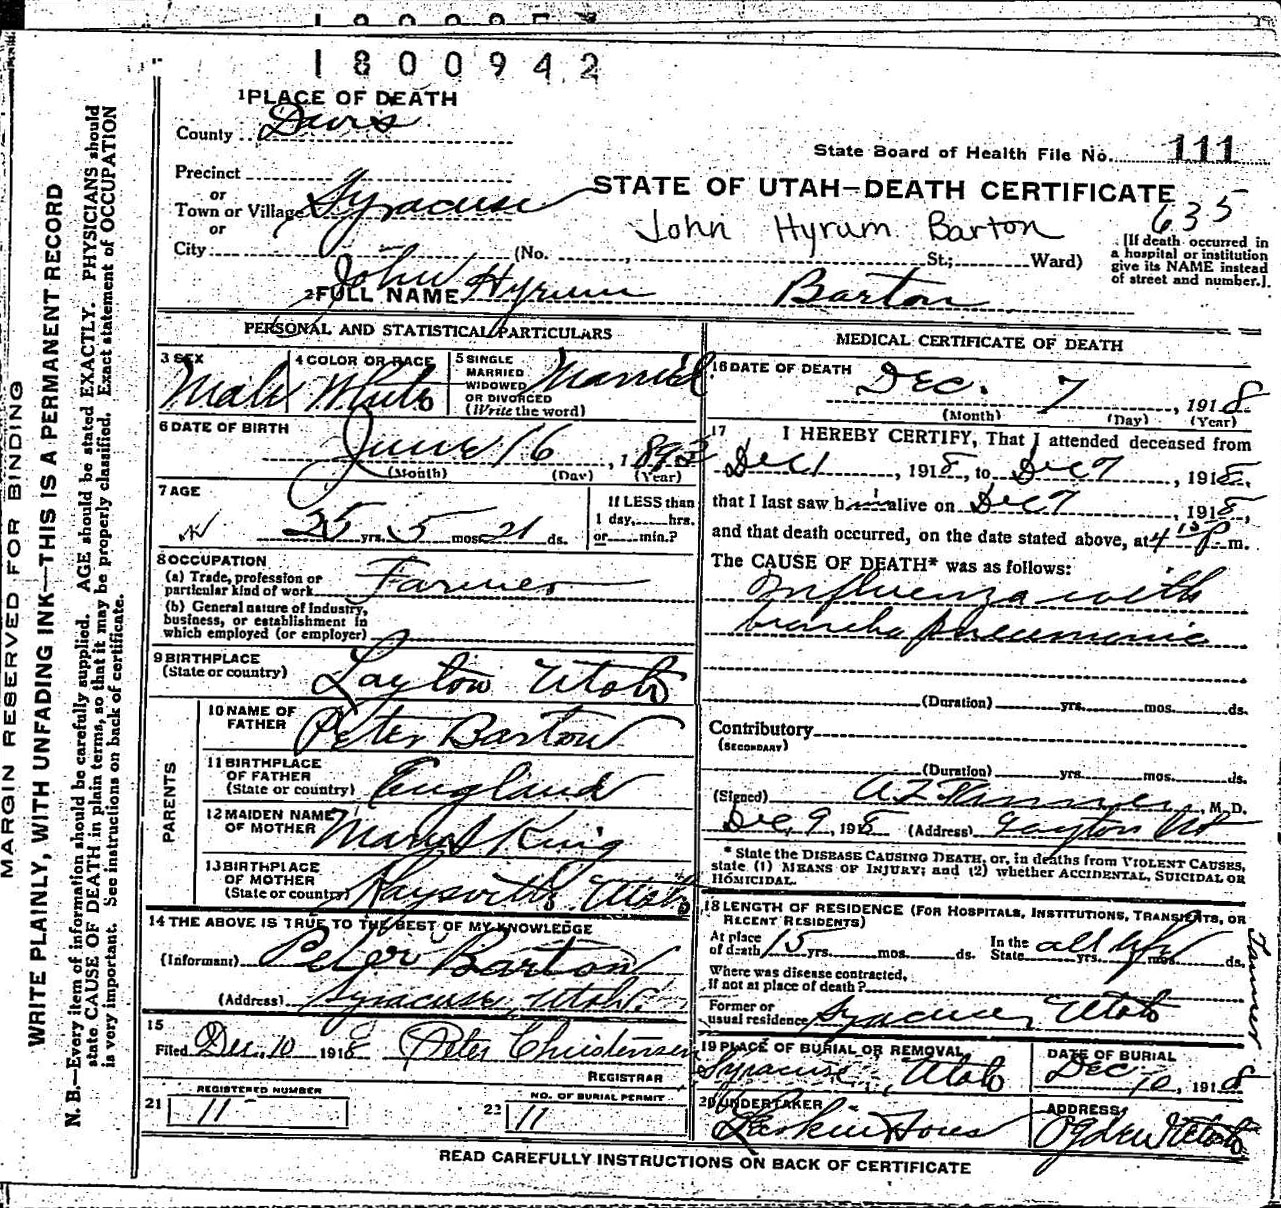 1800942
1 PLACE OF DEATH
County Davis
State Board of Health File No. 111
Precinct
or
STATE OF UTAH—DEATH CERTIFICATE
Town or Village Syracuse
635
or
John Hyrum Barton
City (No. , St.; Ward)
[If death occurred in
a hospital or institution
give its NAME instead
of street and number.]
2 FULL NAME John Hyrum Barton
PERSONAL AND STATISTICAL PARTICULARS
3 SEX Male
4 COLOR OR RACE White
5 SINGLE
MARRIED
WIDOWED
OR DIVORCED
(Write the word) Married
6 DATE OF BIRTH
June 16, 1893
(Month) (Day) (Year)
7 AGE
25 yrs. 5 mos. 21 ds.
If LESS than
1 day, hrs.
or min.?
8 OCCUPATION
(a) Trade, profession or
particular kind of work Farmer
(b) General nature of Industry,
business, or establishment in
which employed (or employer)
9 BIRTHPLACE
(State or country) Layton Utah
PARENTS
10 NAME OF
FATHER Peter Barton
11 BIRTHPLACE
OF FATHER
(State or country) England
12 MAIDEN NAME
OF MOTHER King
13 BIRTHPLACE
OF MOTHER
(State or country) Kaysville Utah
14 THE ABOVE IS TRUE TO THE BEST OF MY KNOWLEDGE
(Informant) Peter Barton
(Address) Syracuse, Utah
15
Filed Dec. 10 1918 Peter Christensen
REGISTRAR
REGISTERED NUMBER
21 11
NO. OF BURIAL PERMIT
22 11
MEDICAL CERTIFICATE OF DEATH
16 DATE OF DEATH
Dec. 7, 1918
(Month) (Day) (Year)
17 I HEREBY CERTIFY, That I attended deceased from
Dec 1, 1918, to Dec 7, 1918,
that I last saw him alive on Dec 7, 1918,
and that death occurred, on the date stated above, at 4 15 P. m.
The CAUSE OF DEATH* was as follows:
Influenza with
broncho pneumonia
(Duration) yrs. mos. ds.
Contributory
(SECONDARY)
(Duration) yrs. mos. ds.
(Signed) M. D.
Dec. 9, 1918 (Address) Layton Ut
* State the DISEASE CAUSING DEATH, or, in deaths from VIOLENT CAUSES,
state (1) MEANS OF INJURY; and (2) whether ACCIDENTAL, SUICIDAL OR
HOMICIDAL.
18 LENGTH OF RESIDENCE (FOR HOSPITALS, INSTITUTIONS, TRANSIENTS, OR
RECENT RESIDENTS)
At place
of death 15 yrs. mos. ds.
In the
State all life yrs. mos. ds.
Where was disease contracted,
if not at place of death?
Former or
usual residence Syracuse, Utah
19 PLACE OF BURIAL OR REMOVAL
Syracuse, Utah
DATE OF BURIAL
Dec 10, 1918
20 UNDERTAKER
Larkin
ADDRESS
Ogden Utah
READ CAREFULLY INSTRUCTIONS ON BACK OF CERTIFICATE
MARGIN RESERVED FOR BINDING
WRITE PLAINLY, WITH UNFADING INK—THIS IS A PERMANENT RECORD
N. B.—Every item of information should be carefully supplied. AGE should be stated EXACTLY. PHYSICIANS should
state CAUSE OF DEATH in plain terms, so that it may be properly classified. Exact statement of OCCUPATION
is very important. See instructions on back of certificate.